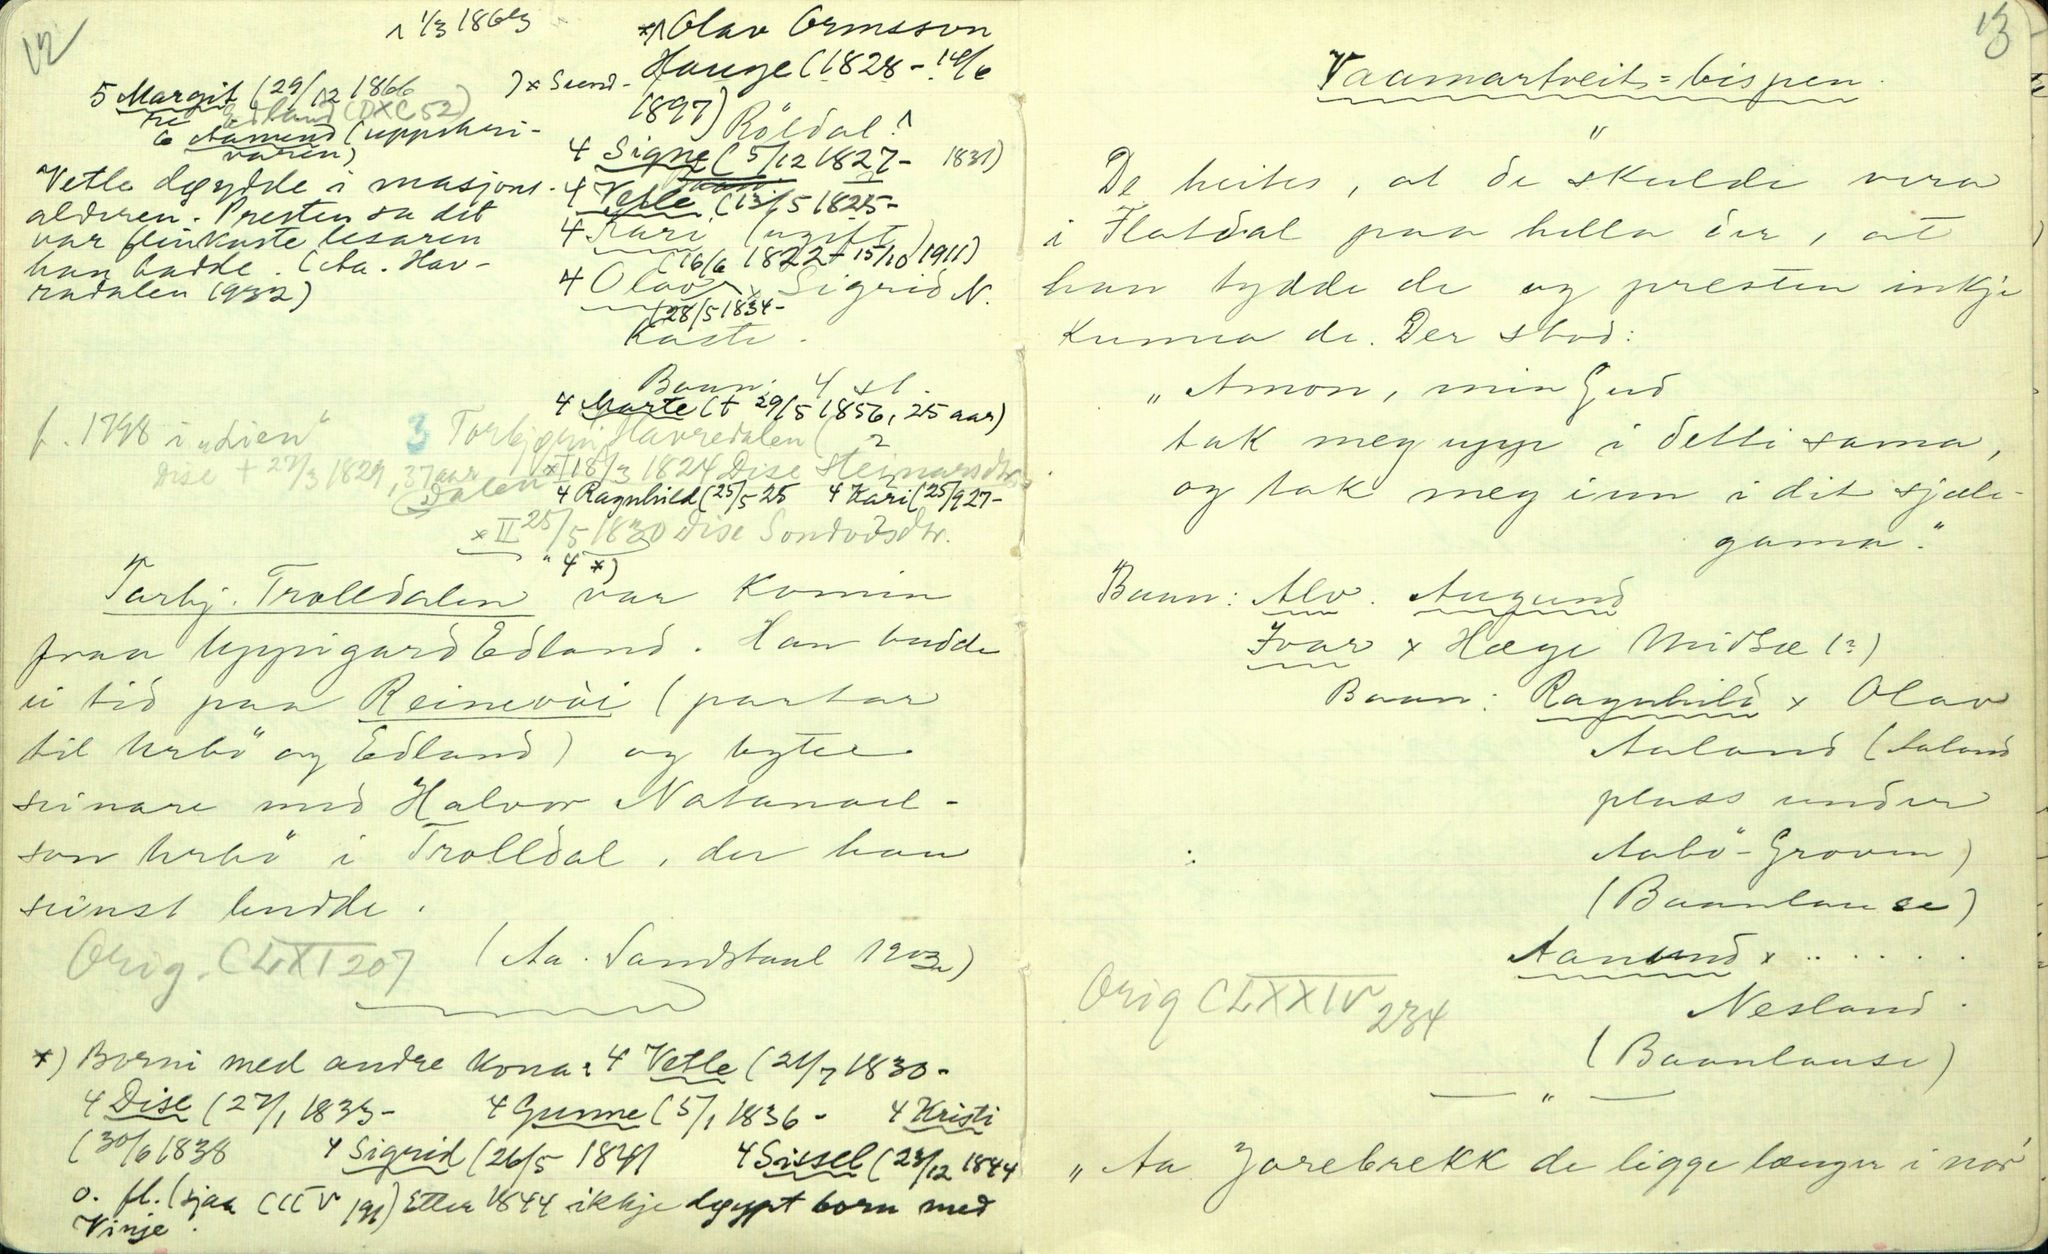 12
⋏ 1/3 1863
*⋏ Olav Ormsson
Hauge (1828 - 14/6
1897) Röldal. ⋏
5 Margit (29/12 1866
Edland (DXC 52)
6 Aamund (uppskri-
varen)
Vetle döydde i masjons-
alderen. Presten sa det
var flinkaste lesaren
han hadde. (Aa. Hav-
radalen 1932)
4 Signe (5/12 1827- 1831)
4 Vetle (13/5 1825-
4 Kari (ugift)
(16/6 1822 + 15/10 1911)
4 Olav x Sigrid N.
(28/5 1834-
Kaste.
Baan: 4 st.
4 Marte (+ 29/5 1856, 25 aar)
f. 1798 i „Lien“
3 Torbjönn Havredalen (
Dise + 27/3 1829, 37 aar
x I 18/3 1824 Dise Steinarsdtr.
Dalen
4 Ragnhild (25/5 25 4 Kari (25/9 27-
x II 25/5 1830 Dise Sondvsdtr.
" 4 *)
Tarbj. Trolldalen var komin
fraa Uppigard Edland. Han budde
ei tid paa Reinevòi (partar
til Urbö og Edland) og bytte
seinare med Halvor Natanael-
son Urbö i Trolldal, der han
seinst budde.
(Aa. Sandstaul 1903)
Orig. CLXI 207
*) Borni med andre kona: 4 Vetle (21/7 1830-
4 Dise (27/1 1833- 4 Gunne (5/1 1836- 4 Kristi
(30/6 1838 4 Sigrid (26/5 1841 4 Sissel (23/12 1844
o. fl. (sjaa CCCV 191) Etter 1844 ikkje döypt born med
Vinje.
13
Vaamartveit-bispen.
"
De heites, at de skulde vera
i Flatdal paa hella der, at
han tydde de og presten inkje
kunna de. Der stod:
„Amon, min Gud
tak meg upp i detti sama,
og tak meg inn i dit sjæle-
gama“.
Baan: Alv. Augund
Ivar x Hæge Midbæ (?)
Baan: Ragnhild x Olav
Aaland (Aaland
plass under
Aabö-Groven)
(Baanlause)
Aanund x . . . . . .
Nesland.
(Baanlause)
Orig CLXXIV 234
— " —
„Aa Jorebrekk de ligge længer i nör